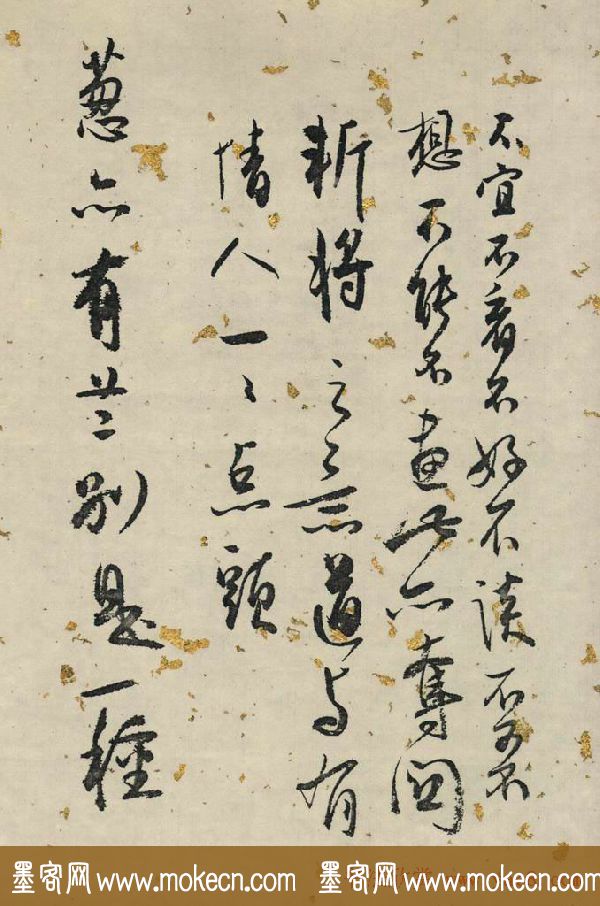 不宜不看不好不读不可不
想不能不画此亦夺
斩将之言道与有
情人一一点头
葱亦有兰别是一種
墨客网 www.mokecn.com 墨客网 www.mokecn.com